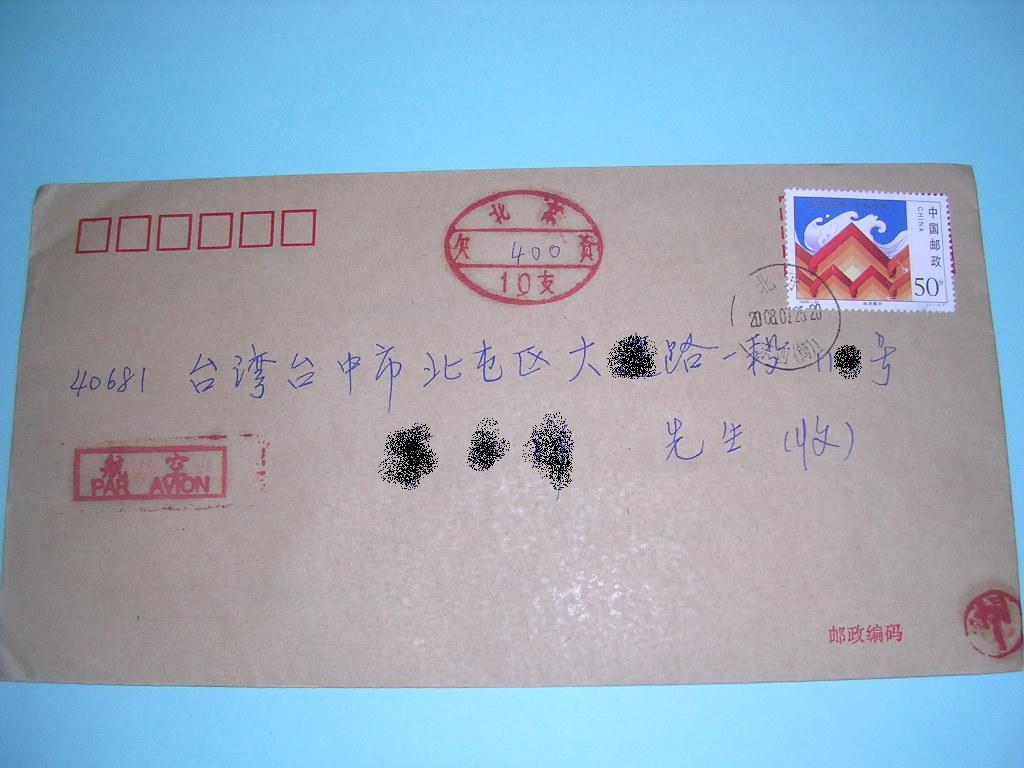 北京
欠 400 資
10支
中国邮政
CHINA
50分
北京
2008.07.25.20
40681 台湾台中市北屯区大 路一段 11 号
先生 (收)
航空
PAR AVION
邮政编码